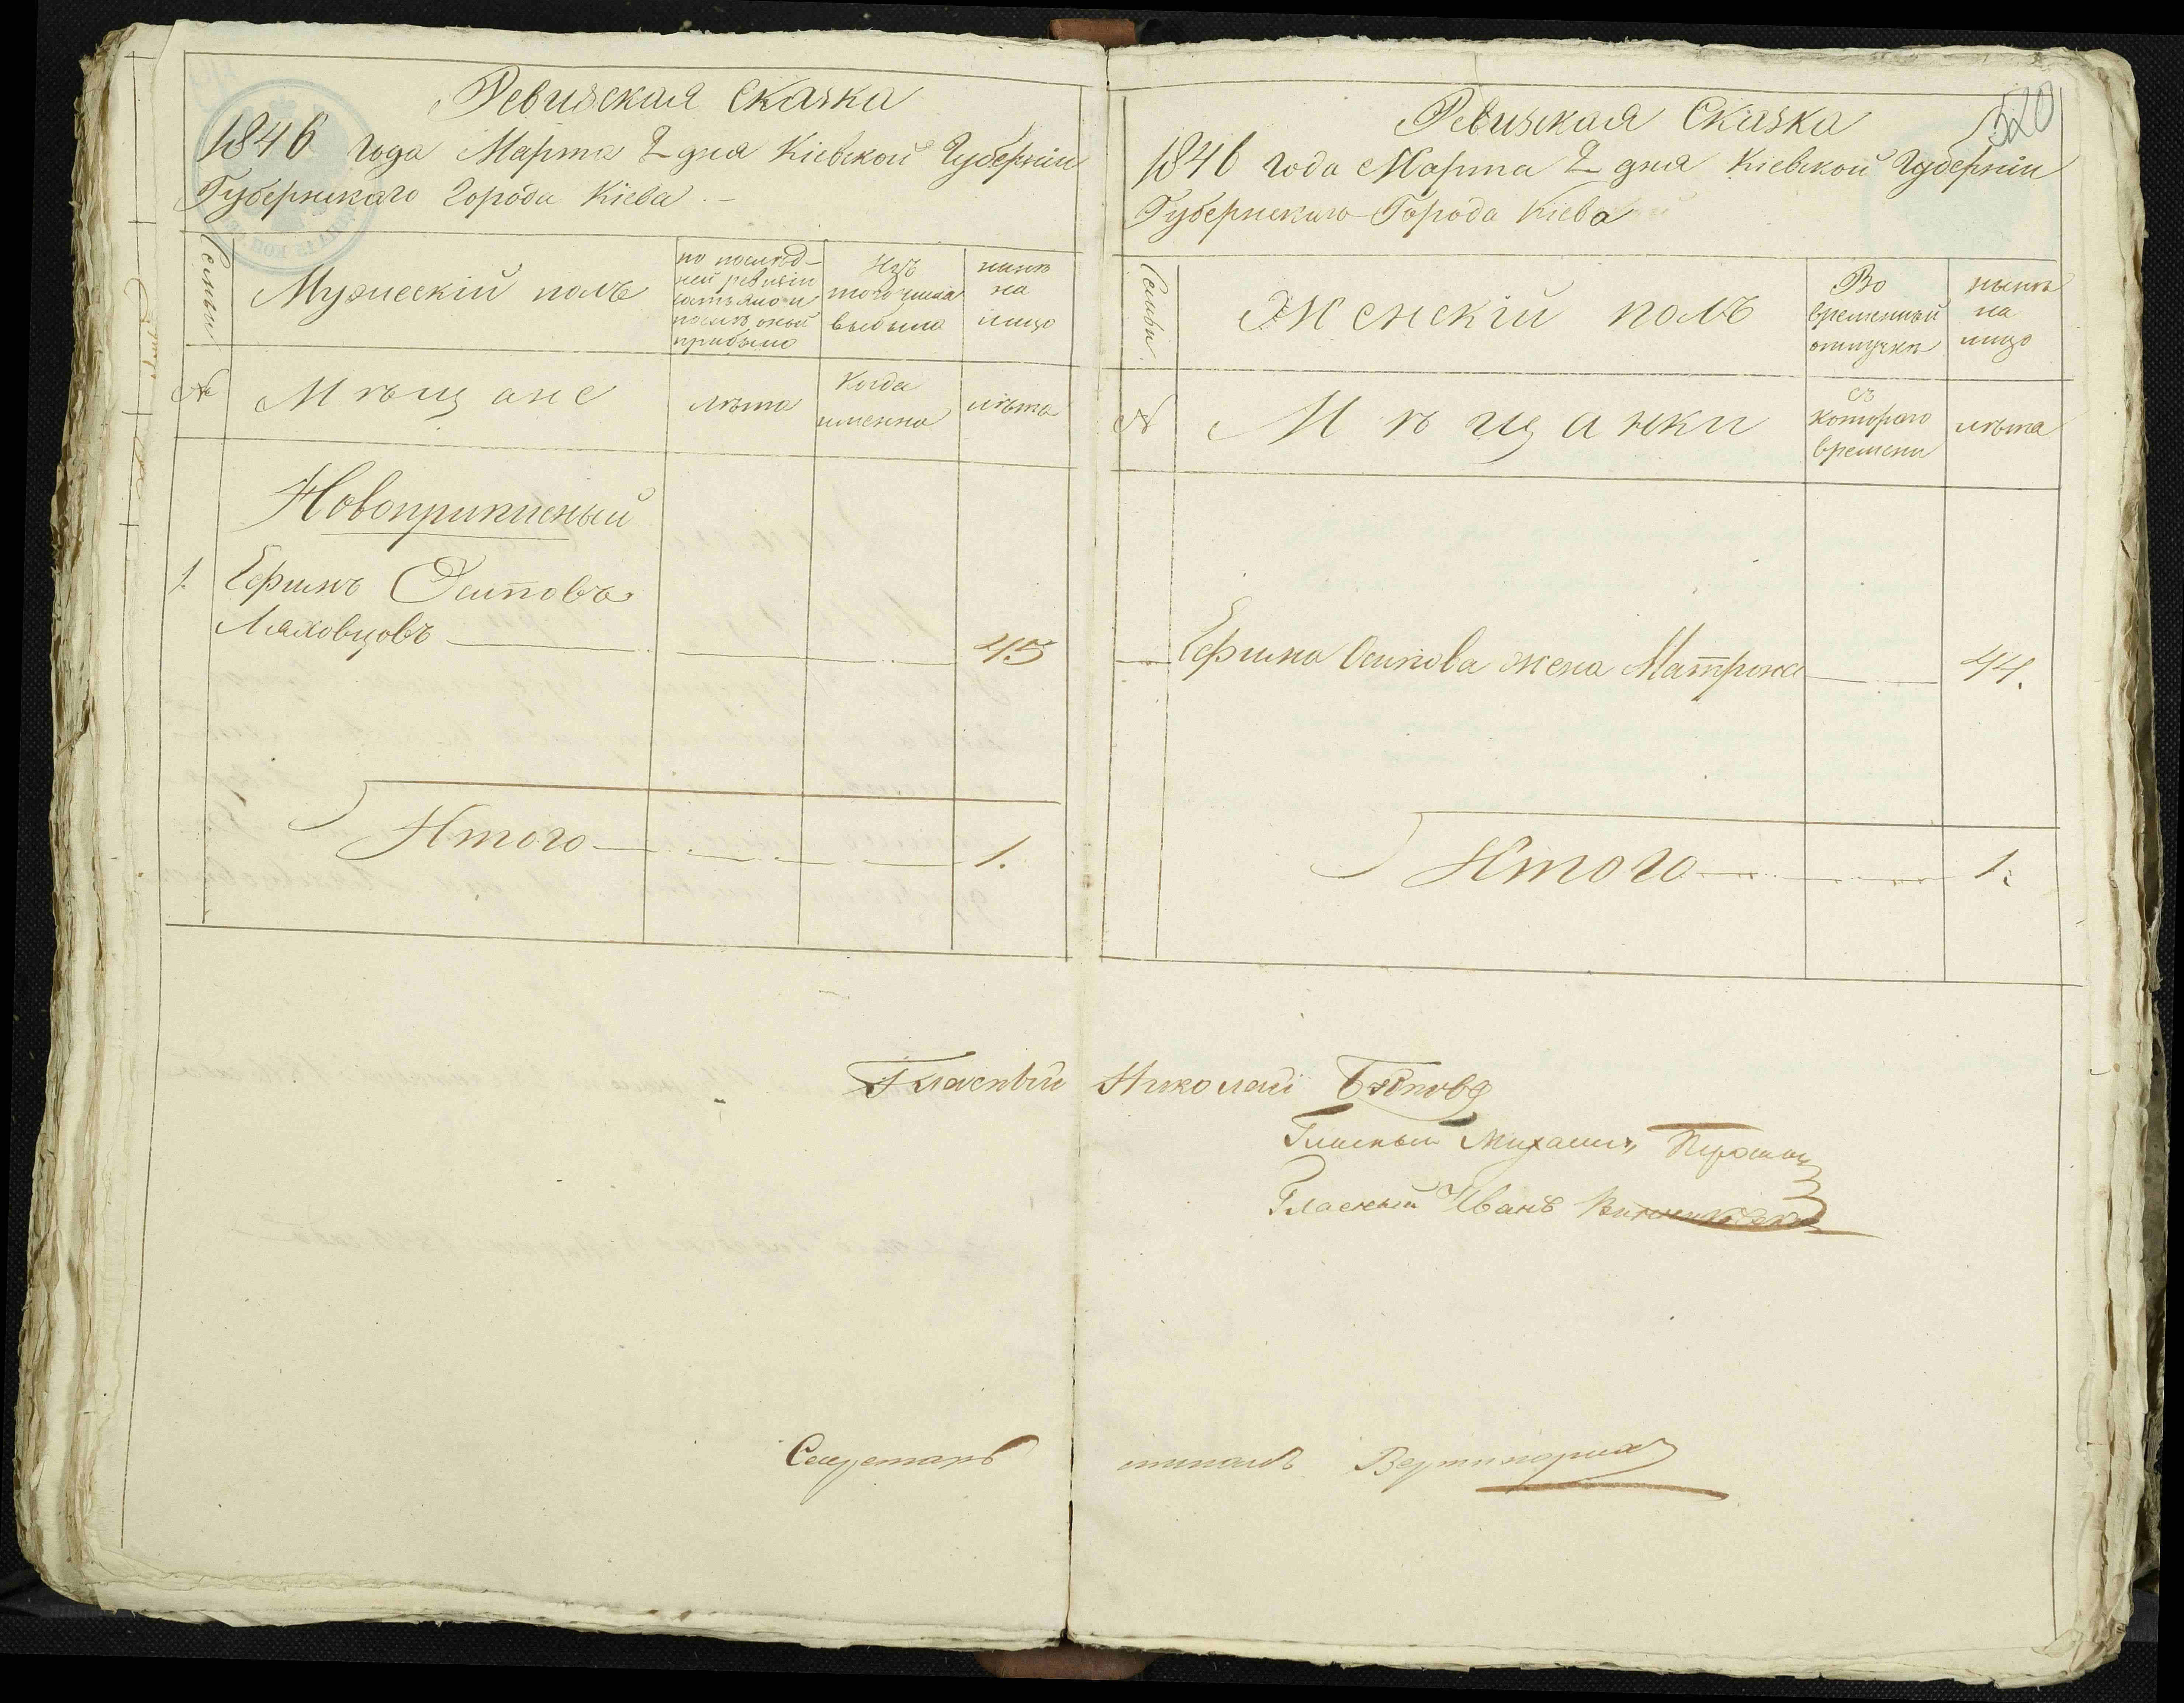 Ревизская Сказка
1846 года Марта 2 дня Кіевской Губерніи
Губернскаго Города Кіева
Семьи
Мужескій полъ
по послѣд-
ней ревизіи
состояло и
послѣ оной
прибыло
Изъ
того числа
выбыло
нынѣ
на
лицо
№
Мѣщане
лѣта
Когда
именно
лѣта
Новоприписный
1. Ефимъ Осиповъ
Ляховцовъ 45
Итого 1.
520
Ревизская Сказка
1846 года Марта 2 дня Кіевской Губерніи
Губернскаго Города Кіева
Семьи
Женскій полъ
Во
временной
отлучкѣ
нынѣ
на
лицо
№
Мѣщанки
съ
котораго
времени
лѣта
Ефима Осипова жена Матрона 44.
Итого 1.
Гласный Николай
Гласный Михаилъ
Гласный Иванъ
Секретарь